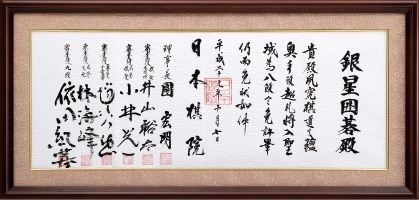 銀星囲碁殿
貴殿夙究棋道之蘊
奥手段超凡将入聖
域為八段々免許畢
仍而免状如件
平成二十三年十月七日
日本棋院
理事長 團 宏明
井山裕太
小林光一
林海峰
依田紀基